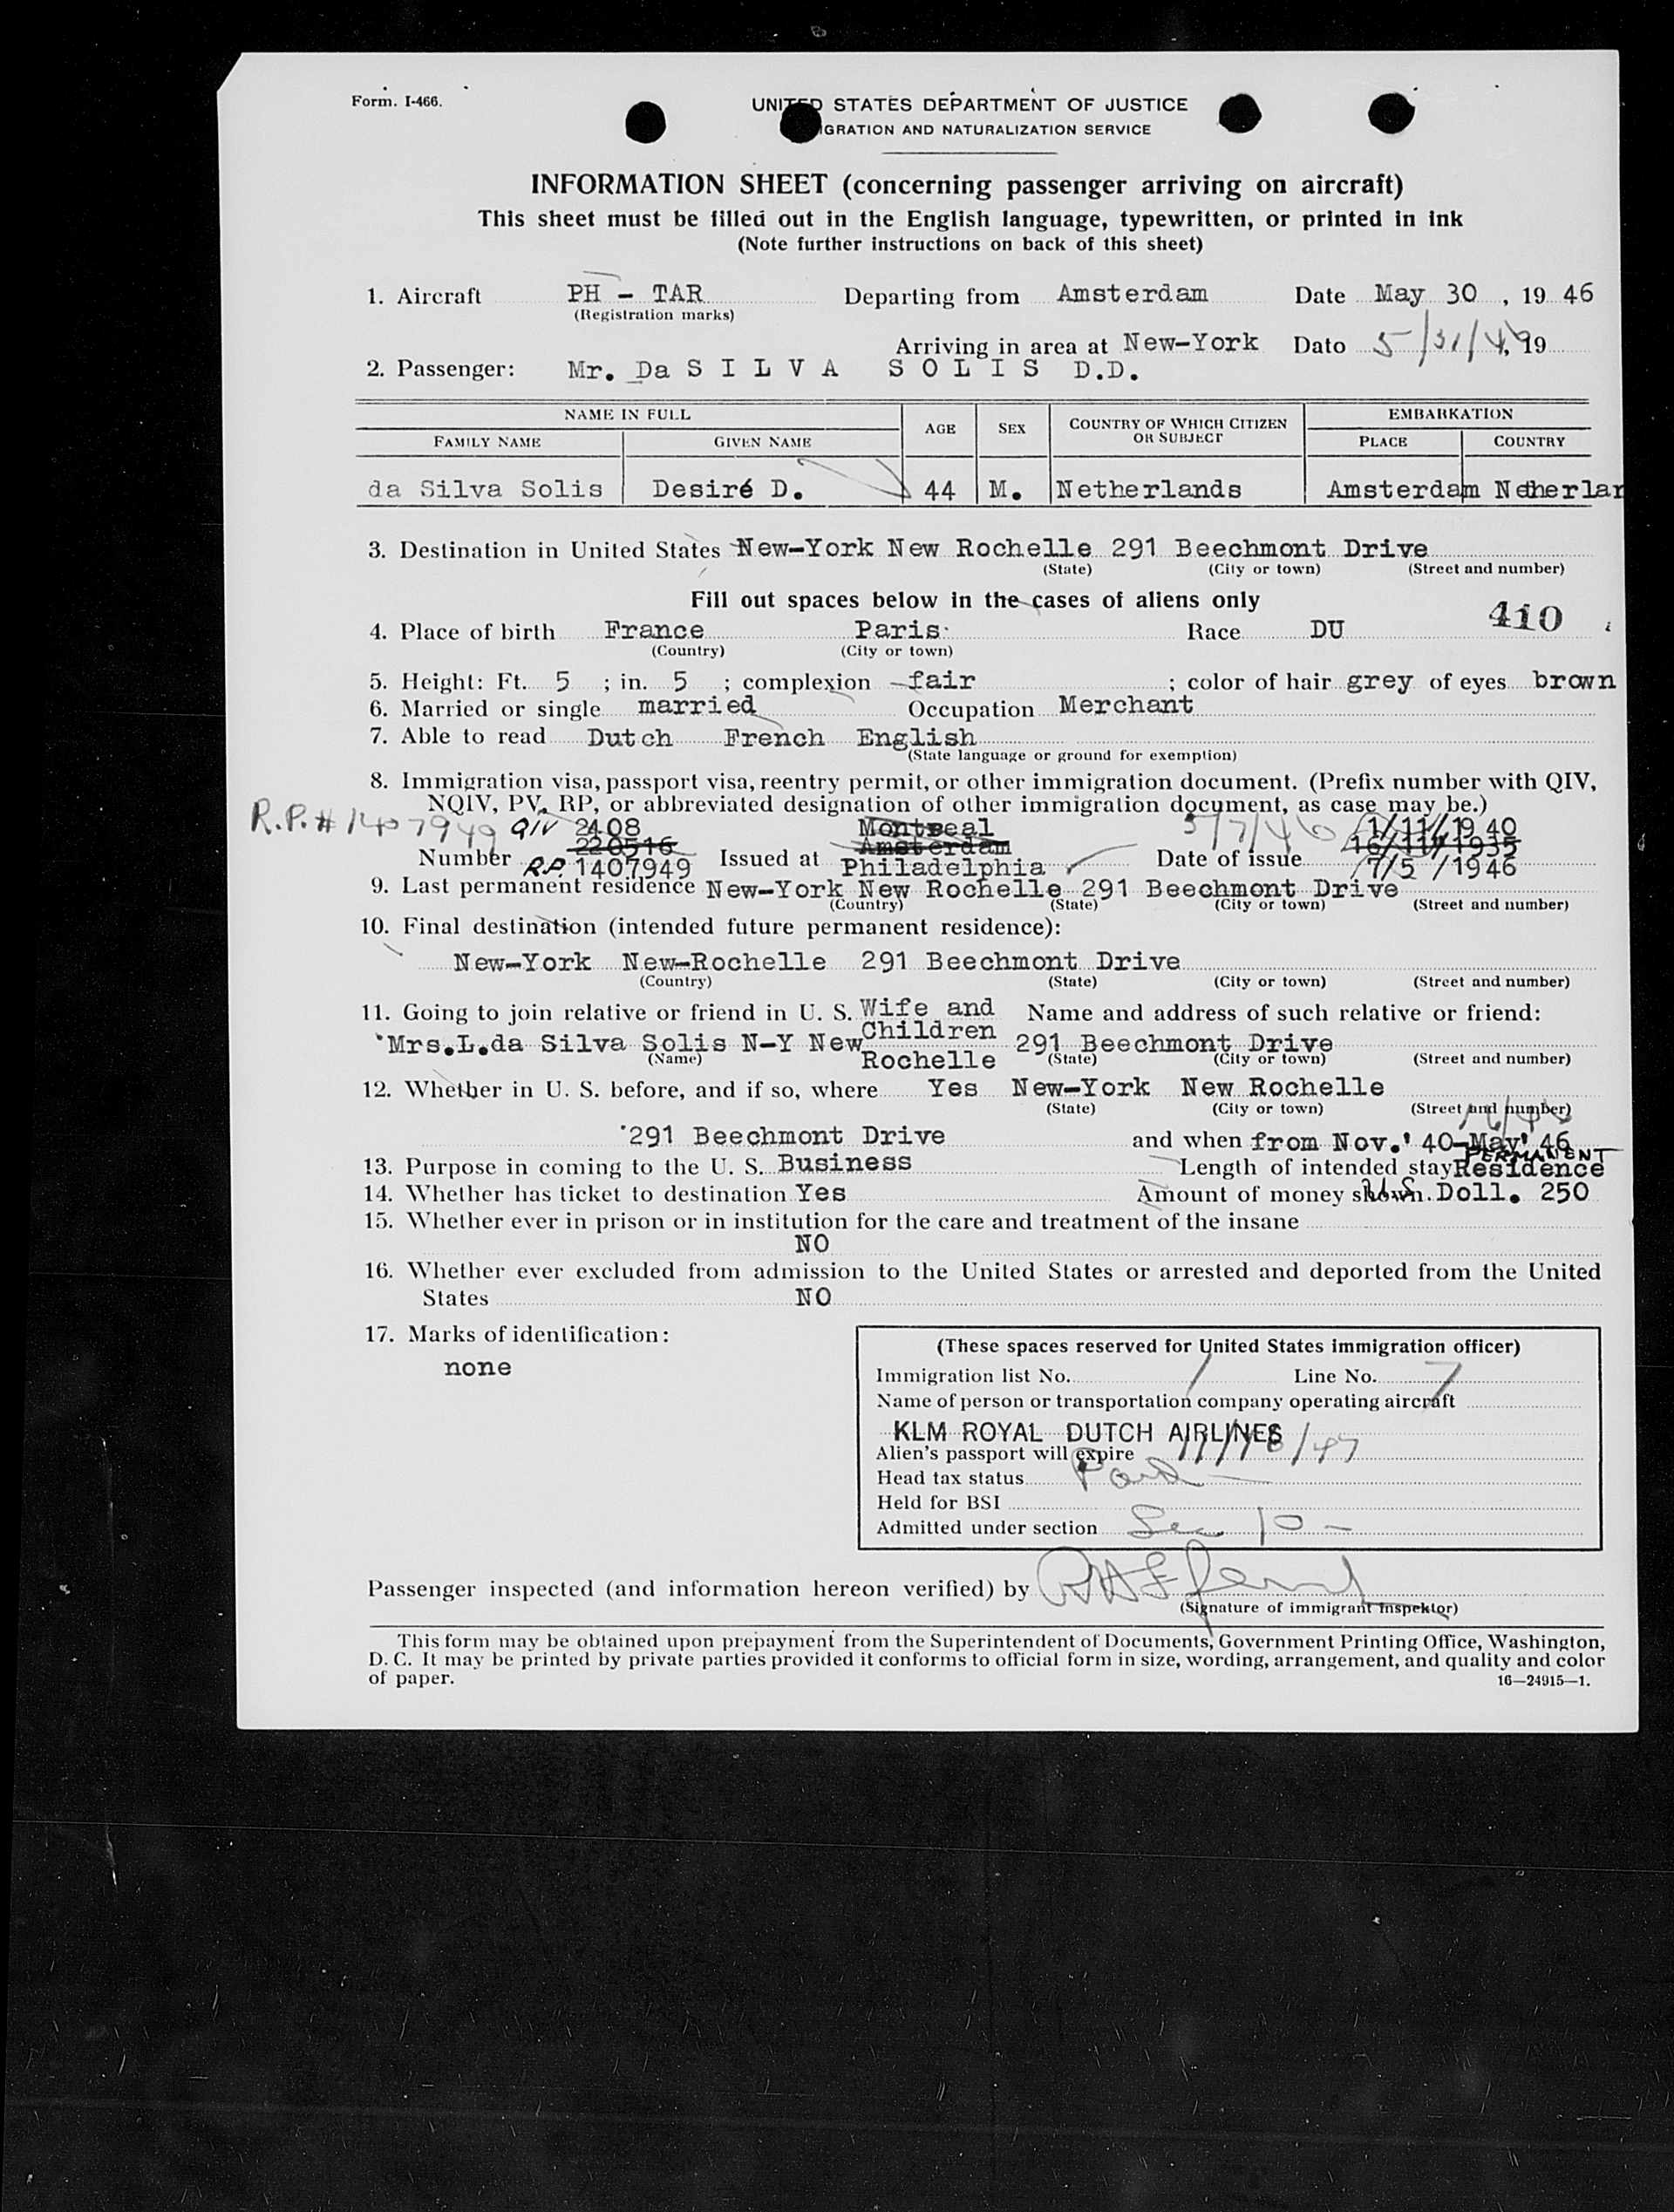 Form. I-466.
UNITED STATES DEPARTMENT OF JUSTICE
IGRATION AND NATURALIZATION SERVICE
INFORMATION SHEET (concerning passenger arriving on aircraft)
This sheet must be filled out in the English language, typewritten, or printed in ink
(Note further instructions on back of this sheet)
1. Aircraft PH - TAR Departing from Amsterdam Date May 30, 19 46
(Registration marks)
Arriving in area at New-York Dato 5/31/46, 19
2. Passenger: Mr. Da S I L V A S O L I S D.D.
NAME IN FULL AGE SEX COUNTRY OF WHICH CITIZEN OR SUBJECT EMBARKATION
FAMILY NAME GIVEN NAME PLACE COUNTRY
da Silva Solis Desiré D. 44 M. Netherlands Amsterdam Netherlan
3. Destination in United States New-York New Rochelle 291 Beechmont Drive
(State) (City or town) (Street and number)
Fill out spaces below in the cases of aliens only
410
4. Place of birth France Paris Race DU
(Country) (City or town)
5. Height: Ft. 5 ; in. 5 ; complexion fair ; color of hair grey of eyes brown
6. Married or single married Occupation Merchant
7. Able to read Dutch French English
(State language or ground for exemption)
8. Immigration visa, passport visa, reentry permit, or other immigration document. (Prefix number with QIV,
NQIV, PV, RP, or abbreviated designation of other immigration document, as case may be.)
R.P. # 1407949 QIV 2408 Montreal 5/7/46 1/11/1940
220516 Amsterdam 16/11/1935
Number R.P. 1407949 Issued at Philadelphia Date of issue 7/5 /1946
9. Last permanent residence New-York New Rochelle 291 Beechmont Drive
(Country) (State) (City or town) (Street and number)
10. Final destination (intended future permanent residence):
New-York New-Rochelle 291 Beechmont Drive
(Country) (State) (City or town) (Street and number)
11. Going to join relative or friend in U. S. Wife and Children Name and address of such relative or friend:
Mrs.L.da Silva Solis N-Y New Rochelle 291 Beechmont Drive
(Name) (State) (City or town) (Street and number)
12. Whether in U. S. before, and if so, where Yes New-York New Rochelle
(State) (City or town) (Street and number)
291 Beechmont Drive and when from Nov.' 40-May' 46
13. Purpose in coming to the U. S. Business Length of intended stay PERMANENT Residence
14. Whether has ticket to destination Yes Amount of money shown. U.S. Doll. 250
15. Whether ever in prison or in institution for the care and treatment of the insane
NO
16. Whether ever excluded from admission to the United States or arrested and deported from the United
States NO
17. Marks of identification:
none
(These spaces reserved for United States immigration officer)
Immigration list No. 1 Line No. 7
Name of person or transportation company operating aircraft
KLM ROYAL DUTCH AIRLINES
Alien's passport will expire 11/18/47
Head tax status
Held for BSI
Admitted under section Sec 10 -
Passenger inspected (and information hereon verified) by
(Signature of immigrant inspektor)
This form may be obtained upon prepayment from the Superintendent of Documents, Government Printing Office, Washington,
D. C. It may be printed by private parties provided it conforms to official form in size, wording, arrangement, and quality and color
of paper.
16—24915—1.